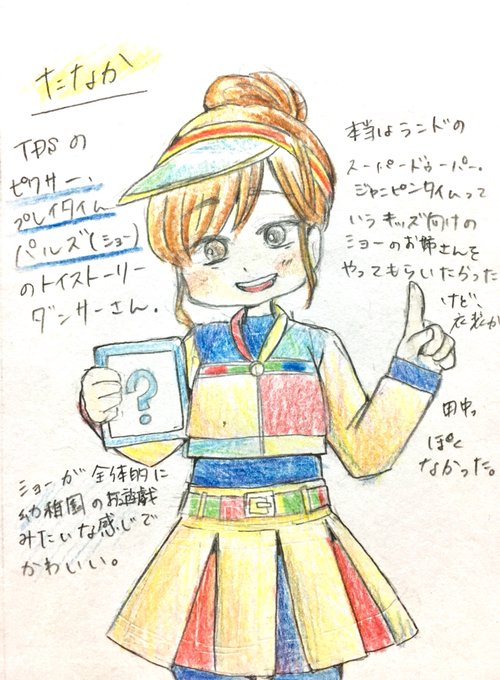 たなか
TDSの
ピクサー、
プレイタイム
パルズ(ショー)
のトイストーリー
ダンサーさん.
本当はランドの
スーパードゥーパー.
ジャンピンタイムって
いうキッズ向けの
ショーのお姉さんを
やってもらいたかった
けど、
衣装が
田中っ
ぽく
なかった。
?
ショーが全体的に
幼稚園のお遊戯
みたいな感じで
かわいい。